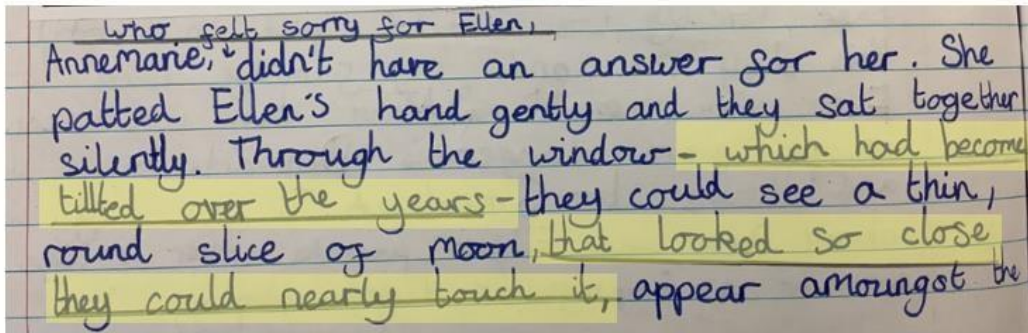 who felt sorry for Ellen,
Annemarie, didn't have an answer for her. She
patted Ellen's hand gently and they sat together
silently. Through the window - which had become
tillted over the years - they could see a thin,
round slice of moon, that looked so close
they could nearly touch it, appear amoungst the